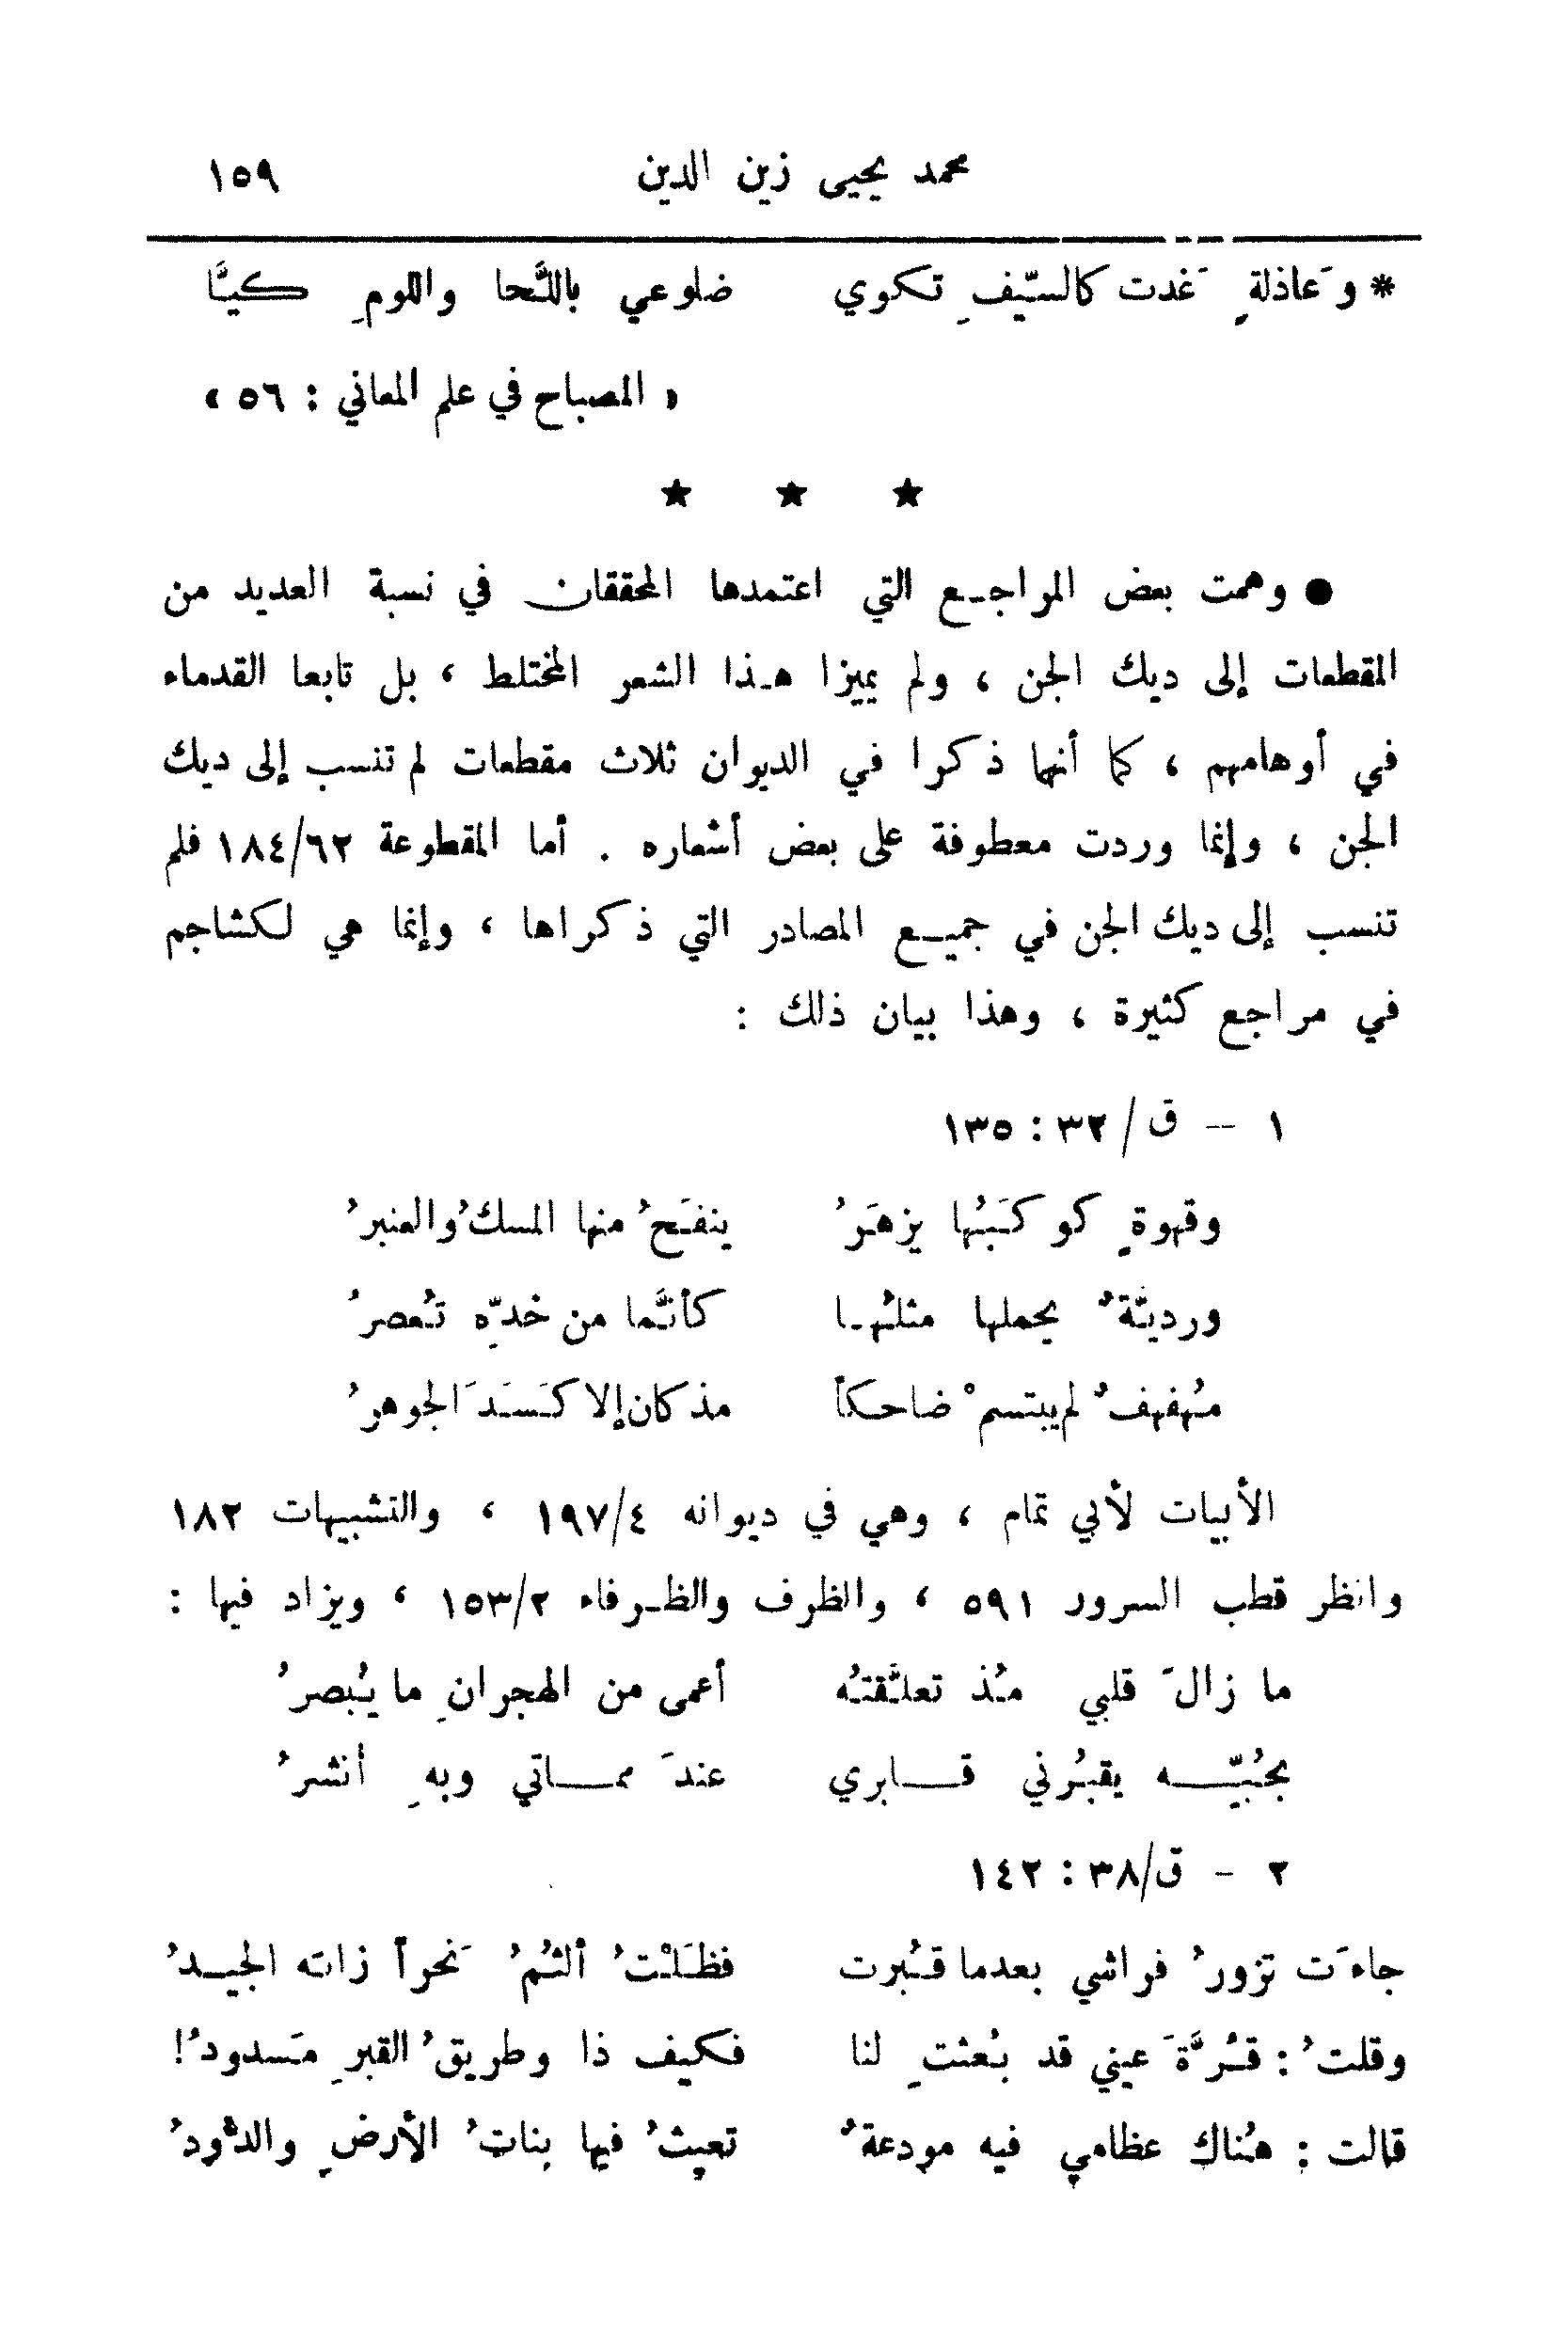 محمد يحيى زين الدين ١٥٩
* وَعاذلةٍ غَدت كالسّيفِ تكوي ضلوعي باللَّحا واللومِ كيَّا
« المصباح في علم المعاني : ٥٦ »
★ ★ ★
● وهمت بعض المراجع التي اعتمدها المحققان في نسبة العديد من
المقطعات إلى ديك الجن ، ولم يميزا هذا الشعر المختلط ، بل تابعا القدماء
في أوهامهم ، كما أنهما ذكرا في الديوان ثلاث مقطعات لم تنسب إلى ديك
الجن ، وإنما وردت معطوفة على بعض أشعاره . أما المقطوعة ١٨٤/٦٢ فلم
تنسب إلى ديك الجن في جميع المصادر التي ذكراها ، وإنما هي لكشاجم
في مراجع كثيرة ، وهذا بيان ذلك :
١ – ق / ٣٢ : ١٣٥
وقهوةٍ كوكَبُها يزهَرُ ينفَحُ منها المسكُ والعنبرُ
ورديَّةٌ يحملها مثلُها كأنَّما من خدِّهِ تُعصرُ
مُهفهفٌ لم يبتسمْ ضاحكاً مذ كان إلا كَسَدَ الجوهرُ
الأبيات لأبي تمام ، وهي في ديوانه ١٩٧/٤ ، والتشبيهات ١٨٢
وانظر قطب السرور ٥٩١ ، والظرف والظرفاء ١٥٣/٢ ، ويزاد فيها :
ما زالَ قلبي مُذ تعلَّقتُه أعمى من الهجرانِ ما يُبصرُ
بحُبِّه يقبُرني قابري عندَ مماتي وبهِ أنشرُ
٢ – ق/٣٨ : ١٤٢
جاءَت تزورُ فراشي بعدما قُبرت فظَلْتُ ألثُمُ نَحراً زانَه الجيدُ
وقلتُ : قُرَّةَ عيني قد بُعثتِ لنا فكيف ذا وطريقُ القبرِ مَسدودُ!
قالت : هُناك عظامي فيه مودعةٌ تعيثُ فيها بناتُ الأرضِ والدُّودُ